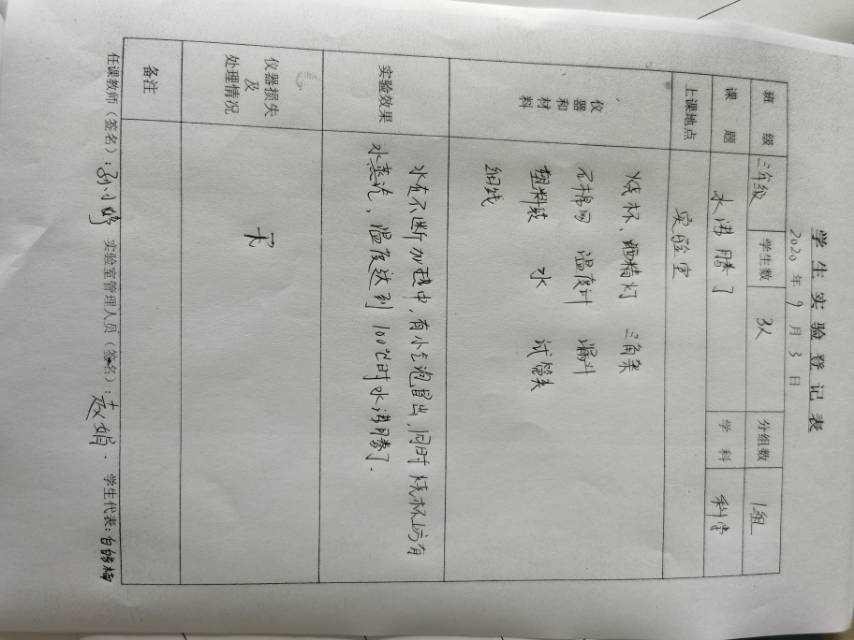 学生实验登记表
2020 年 9 月 3 日
班级 三年级 学生数 3人 分组数 1组
课题 水沸腾了 学科 科学
上课地点 实验室
仪器和材料
烧杯、酒精灯 三角架
石棉网 温度计 漏斗
塑料袋 水 试管夹
细线
实验效果
水在不断加热中,有小气泡冒出,同时烧杯上方有
水蒸汽、温度达到100℃时水沸腾了.
仪器损失及处理情况 无
备注
任课教师(签名): 孙小 实验室管理人员(签名): 赵娟. 学生代表: 白